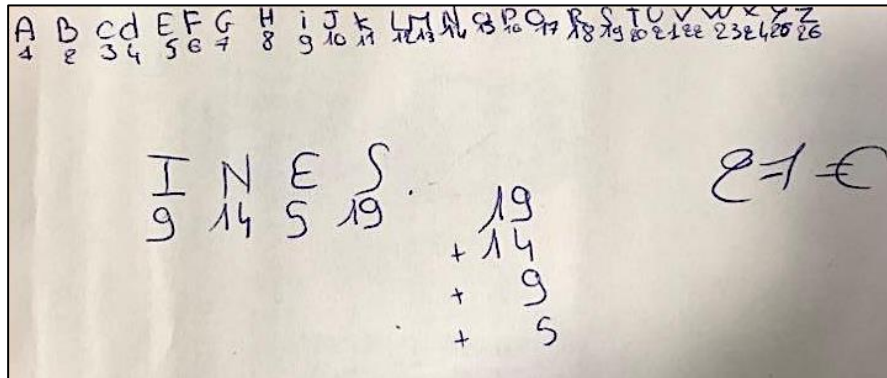 A B C d E F G H i J K L M N O P Q R S T U V W X Y Z
1 2 3 4 5 6 7 8 9 10 11 12 13 14 15 16 17 18 19 20 21 22 23 24 25 26
I N E S.
9 14 5 19
19
+ 14
+ 9
+ 5